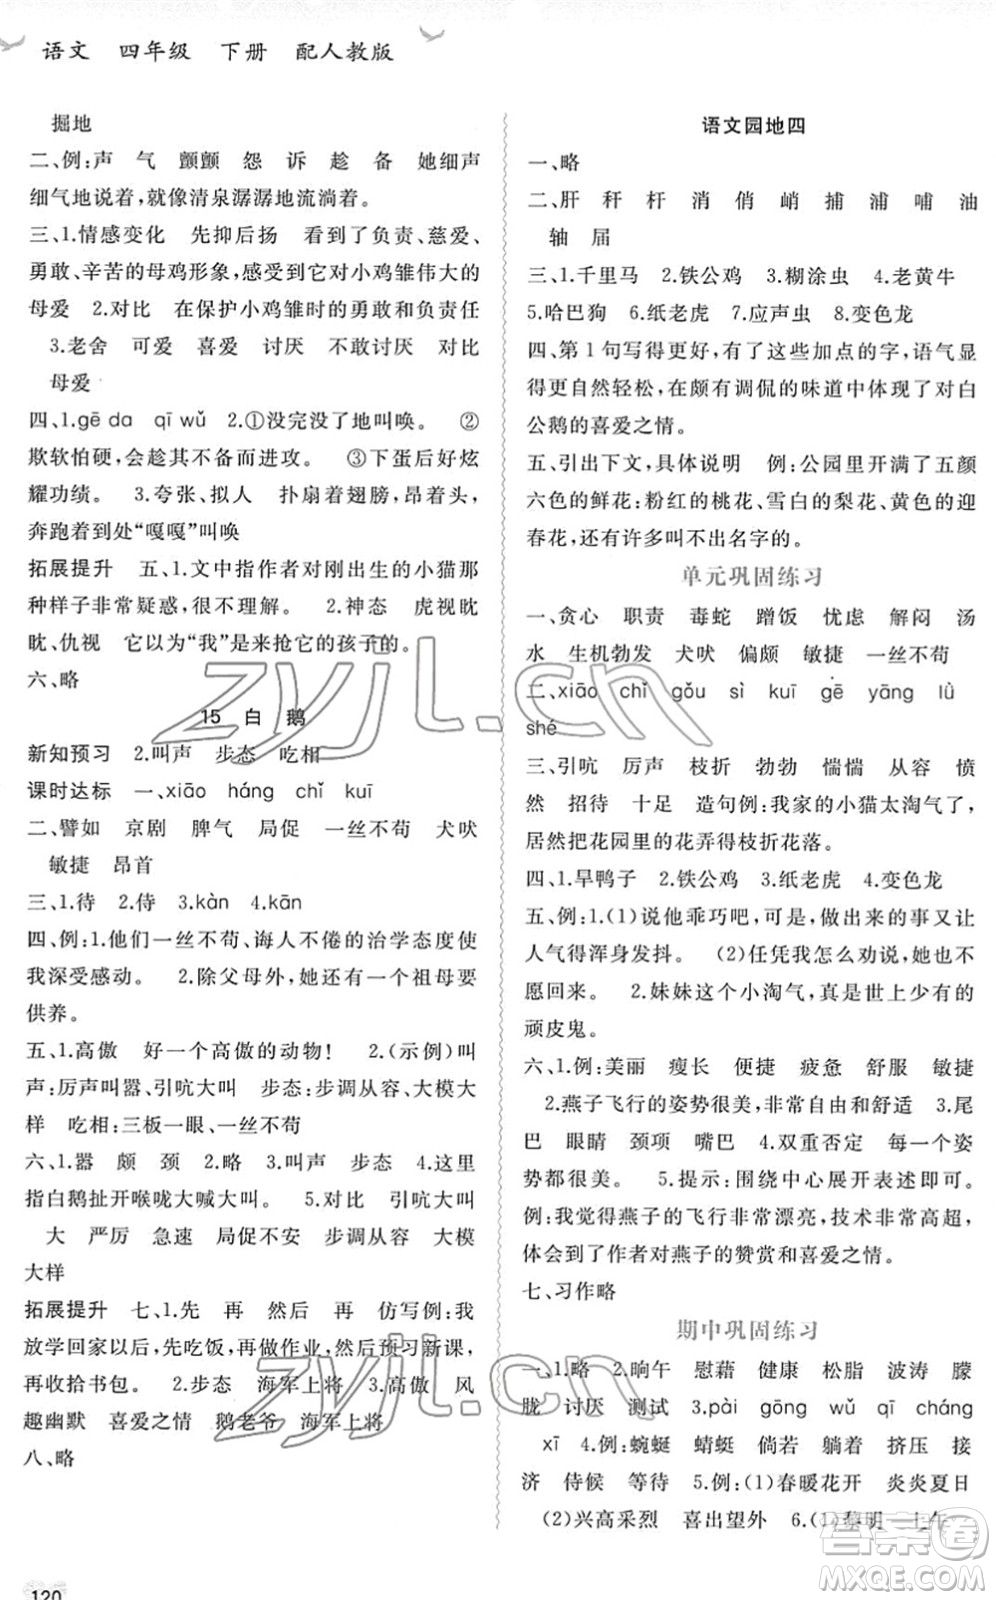 语文 四年级 下册 配人教版
掘地
二、例:声 气 颤颤 怨 诉 趁 备 她细声
细气地说着,就像清泉潺潺地流淌着。
三、1.情感变化 先抑后扬 看到了负责、慈爱、
勇敢、辛苦的母鸡形象,感受到了它对小鸡雏伟大的
母爱 2.对比 在保护小鸡雏时的勇敢和负责任
3.老舍 可爱 喜爱 讨厌 不敢讨厌 对比
母爱
四、1.gē da qī wǔ 2.①没完没了地叫唤。 ②
欺软怕硬,会趁其不备而进攻。 ③下蛋后好炫
耀功绩。 3.夸张、拟人 扑扇着翅膀,昂着头,
奔跑着到处“嘎嘎”叫唤
拓展提升 五、1.文中指作者对刚出生的小猫那
种样子非常疑惑,很不理解。 2.神态 虎视眈
眈、仇视 它以为“我”是来抢它的孩子的。
六、略
15 白 鹅
新知预习 2.叫声 步态 吃相
课时达标 一、xiāo háng chǐ kuī
二、譬如 京剧 脾气 局促 一丝不苟 犬吠
敏捷 昂首
三、1.待 2.侍 3.kàn 4.kān
四、例:1.他们一丝不苟、诲人不倦的治学态度使
我深受感动。 2.除父母外,她还有一个祖母要
供养。
五、1.高傲 好一个高傲的动物! 2.(示例)叫
声:厉声叫嚣、引吭大叫 步态:步调从容、大模大
样 吃相:三板一眼、一丝不苟
六、1.嚣 颇 颈 2.略 3.叫声 步态 4.这里
指白鹅扯开喉咙大喊大叫。 5.对比 引吭大叫
大 严厉 急速 局促不安 步调从容 大模
大样
拓展提升 七、1.先 再 然后 再 仿写例:我
放学回家以后,先吃饭,再做作业,然后预习新课,
再收拾书包。 2.步态 海军上将 3.高傲 风
趣幽默 喜爱之情 鹅老爷 海军上将
八、略
120
语文园地四
一、略
二、肝 秆 杆 消 俏 峭 捕 浦 哺 油
轴 届
三、1.千里马 2.铁公鸡 3.糊涂虫 4.老黄牛
5.哈巴狗 6.纸老虎 7.应声虫 8.变色龙
四、第1句写得更好,有了这些加点的字,语气显
得更自然轻松,在颇有调侃的味道中体现了对白
公鹅的喜爱之情。
五、引出下文,具体说明 例:公园里开满了五颜
六色的鲜花:粉红的桃花、雪白的梨花、黄色的迎
春花,还有许多叫不出名字的花。
单元巩固练习
一、贪心 职责 毒蛇 蹭饭 忧虑 解闷 汤
水 生机勃发 犬吠 偏颇 敏捷 一丝不苟
二、xiāo chǐ gǒu sì kuī gē yāng lǜ
shé
三、引吭 厉声 枝折 勃勃 惴惴 从容 愤
然 招待 十足 造句例:我家的小猫太淘气了,
居然把花园里的花弄得枝折花落。
四、1.旱鸭子 2.铁公鸡 3.纸老虎 4.变色龙
五、例:1.(1)说他乖巧吧,可做出来的事又让
人气得浑身发抖。 (2)任凭我怎么劝说,她也不
愿回来。 2.妹妹这个小淘气,真是世上少有的
顽皮鬼。
六、1.例:美丽 瘦长 便捷 疲惫 舒服 敏捷
2.燕子飞行的姿势很美,非常自由和舒适 3.尾
巴 眼睛 颈项 嘴巴 4.双重否定 每一个姿
势都很美。 5.提示:围绕中心展开表述即可。
例:我觉得燕子的飞行非常漂亮,技术非常高超,
体会到了作者对燕子的赞赏和喜爱之情。
七、习作略
期中巩固练习
一、1.略 2.晌午 慰藉 健康 松脂 波涛 朦
胧 讨厌 测试 3.pài gōng wǔ qī cháng
xī 4.例:蜿蜒 蜻蜓 倘若 躺着 挤压 接
济 侍候 等待 5.例:(1)春暖花开 炎炎夏日
(2)兴高采烈 喜出望外 6.(1)黎明 上午
zyjl.cn
zyjl.cn
答案圈
MXQE.COM